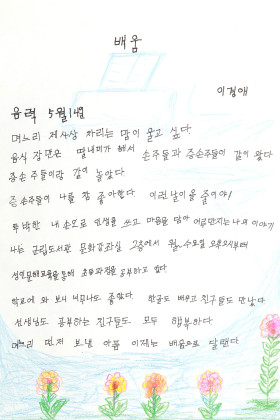 배움
이정애
음력 5월 14일
며느리 제사상 차리는 맘이 울고 싶다
음식 장만은 딸내미가 해서 손주들과 증손주들이 같이 왔다
증손주들이랑 같이 놀았다
증손주들이 나를 참 좋아한다 이런날이 올 줄이야!
투박한 내 손으로 인생을 쓰고 마음을 담아 어루만지는 나의 이야기
나는 군립도서관 문화강좌실 2층에서 월, 수요일 오후 2시부터
성인문해교육을 통해 초등과정을 공부하고 있다
학교에 와 보니 너무나도 좋았다 한글도 배우고 친구들도 만났다
선생님도 공부하는 친구들도 모두 행복하다
며느리 먼저 보낸 아픔 이제는 배움으로 달랜다